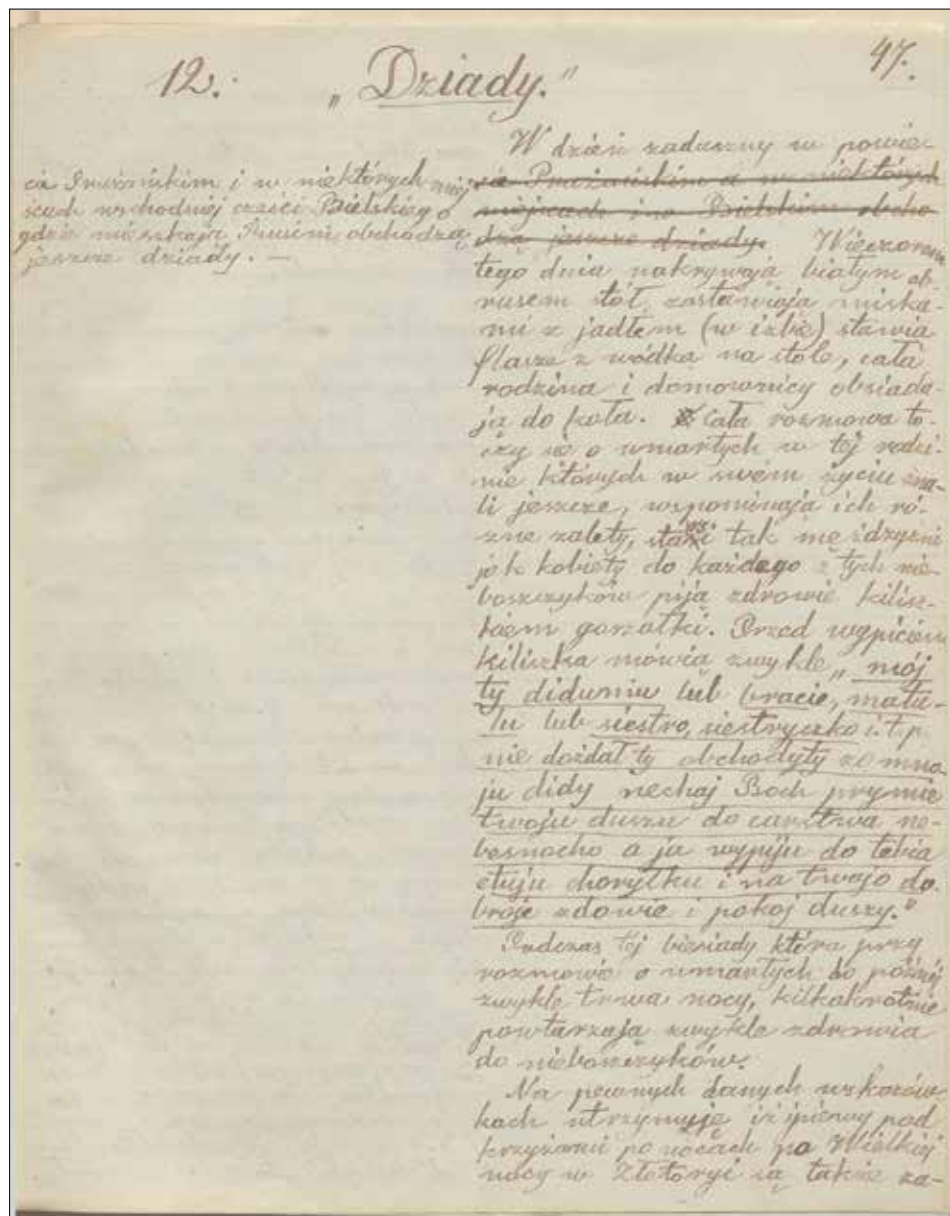 12. „Dziady." 47.
W dzień zaduszny w powie-
cie Prużańskim i w niektórych miej
scach wschodniej części Bielskiego
gdzie mieszkają Rusini obchodzą
jeszcze dziady. —
cie Prużańskim a w niektórych
miejscach i w Bielskim obcho
dzą jeszcze dziady. Wieczorem
tego dnia nakrywają białym ob-
rusem stół, zastawiają miska-
mi z jadłem (w izbie) stawia
flasze z wódką na stole, cała
rodzina i domownicy obsiada
ją do koła. Cała rozmowa to-
czy się o umarłych w tej rodzi-
nie których w swém życiu zna-
li jeszcze, wspominają ich ró-
żne zalety, tak mężczyzni
jak kobiety do każdego z tych nie-
boszczyków piją zdrowie kilisz-
kiem gorzałki. Przed wypiciem
kiliszka mówią zwykle „mój
ty diduniu lub bracie, matu-
lu lub siestro, siestryczko i.t.p.
nie dożdał ty obchodyty zo mno
ju didy nechaj Boch prymie
twoju duszu do carstwa ne-
besnocho a ja wypiju do tebia
etuju choryłku i na twajo do-
broje zdowie i pokoj duszy."
Podczas tej biesiady która przy
rozmowie o umarłych do późnej
zwykle trwa nocy, kilkakrotnie
powtarzają zwykle zdrowia
do nieboszczyków.
Na pewnych danych wskazów-
kach utrzymuję iż śpiewy pod
krzyżami po nocach po Wielkiej
nocy w Złotoryi są także za-